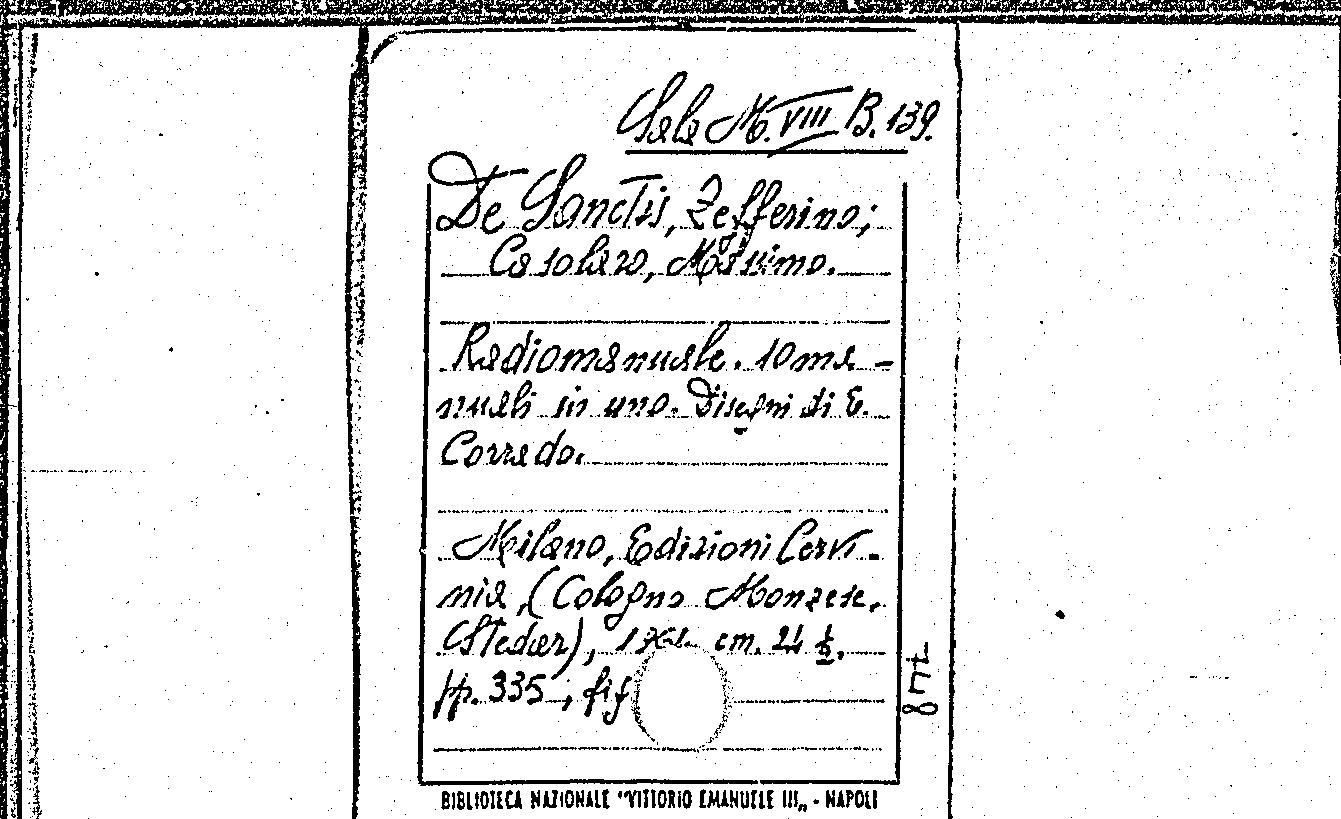 Sala M. VIII B. 139.
De Sanctis, Zefferino;
Casolaro, Massimo.
Radiomanuale. 10 ma-
nuali in uno. Disegni di E.
Corrado.
Milano, Edizioni Cervi-
nia, (Cologno Monzese,
Stedar), cm. 24 ½.
pp. 335, fig
847
BIBLIOTECA NAZIONALE "VITTORIO EMANUELE III„ - NAPOLI